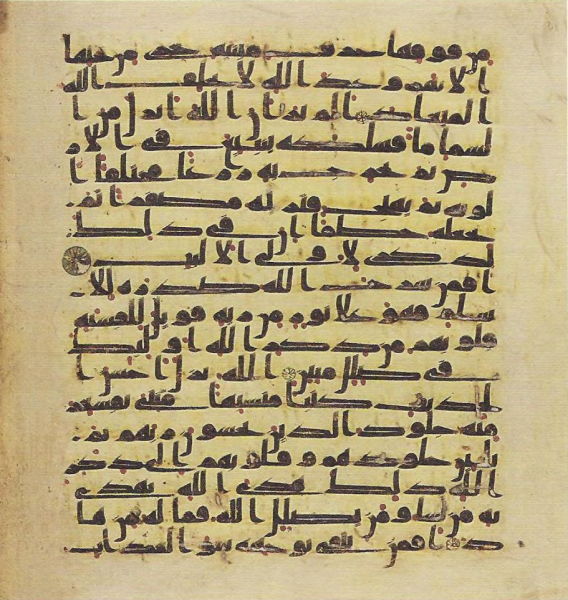 من فوقها غرف مبنية تجري من تحتها
الانهر وعد الله لا يخلف الله
الميعاد الم تر ان الله انزل من ا
لسما ما فسلكه ينبيع في الار
ض ثم يخرج به زرعا مختلفا ا
لونه ثم يهيج فتريه مصفرا ثم
يجعله حطما ان في ذلك
لذكرى لاولي الالبب
افمن شرح الله صدره للا
سلم فهو على نور من ربه فويل للقسية
قلوبهم من ذكر الله اوليك
في ضلل مبين الله نزل احسن ا
لحديث كتبا متشبها مثني تقشعر
منه جلود الذين يخشون ربهم ثم
تلين جلودهم وقلوبهم الى ذكر
الله ذلك هدى الله يهدي
به من يشا ومن يضلل الله فما له من ها
د افمن يتقي بوجهه سو العذاب